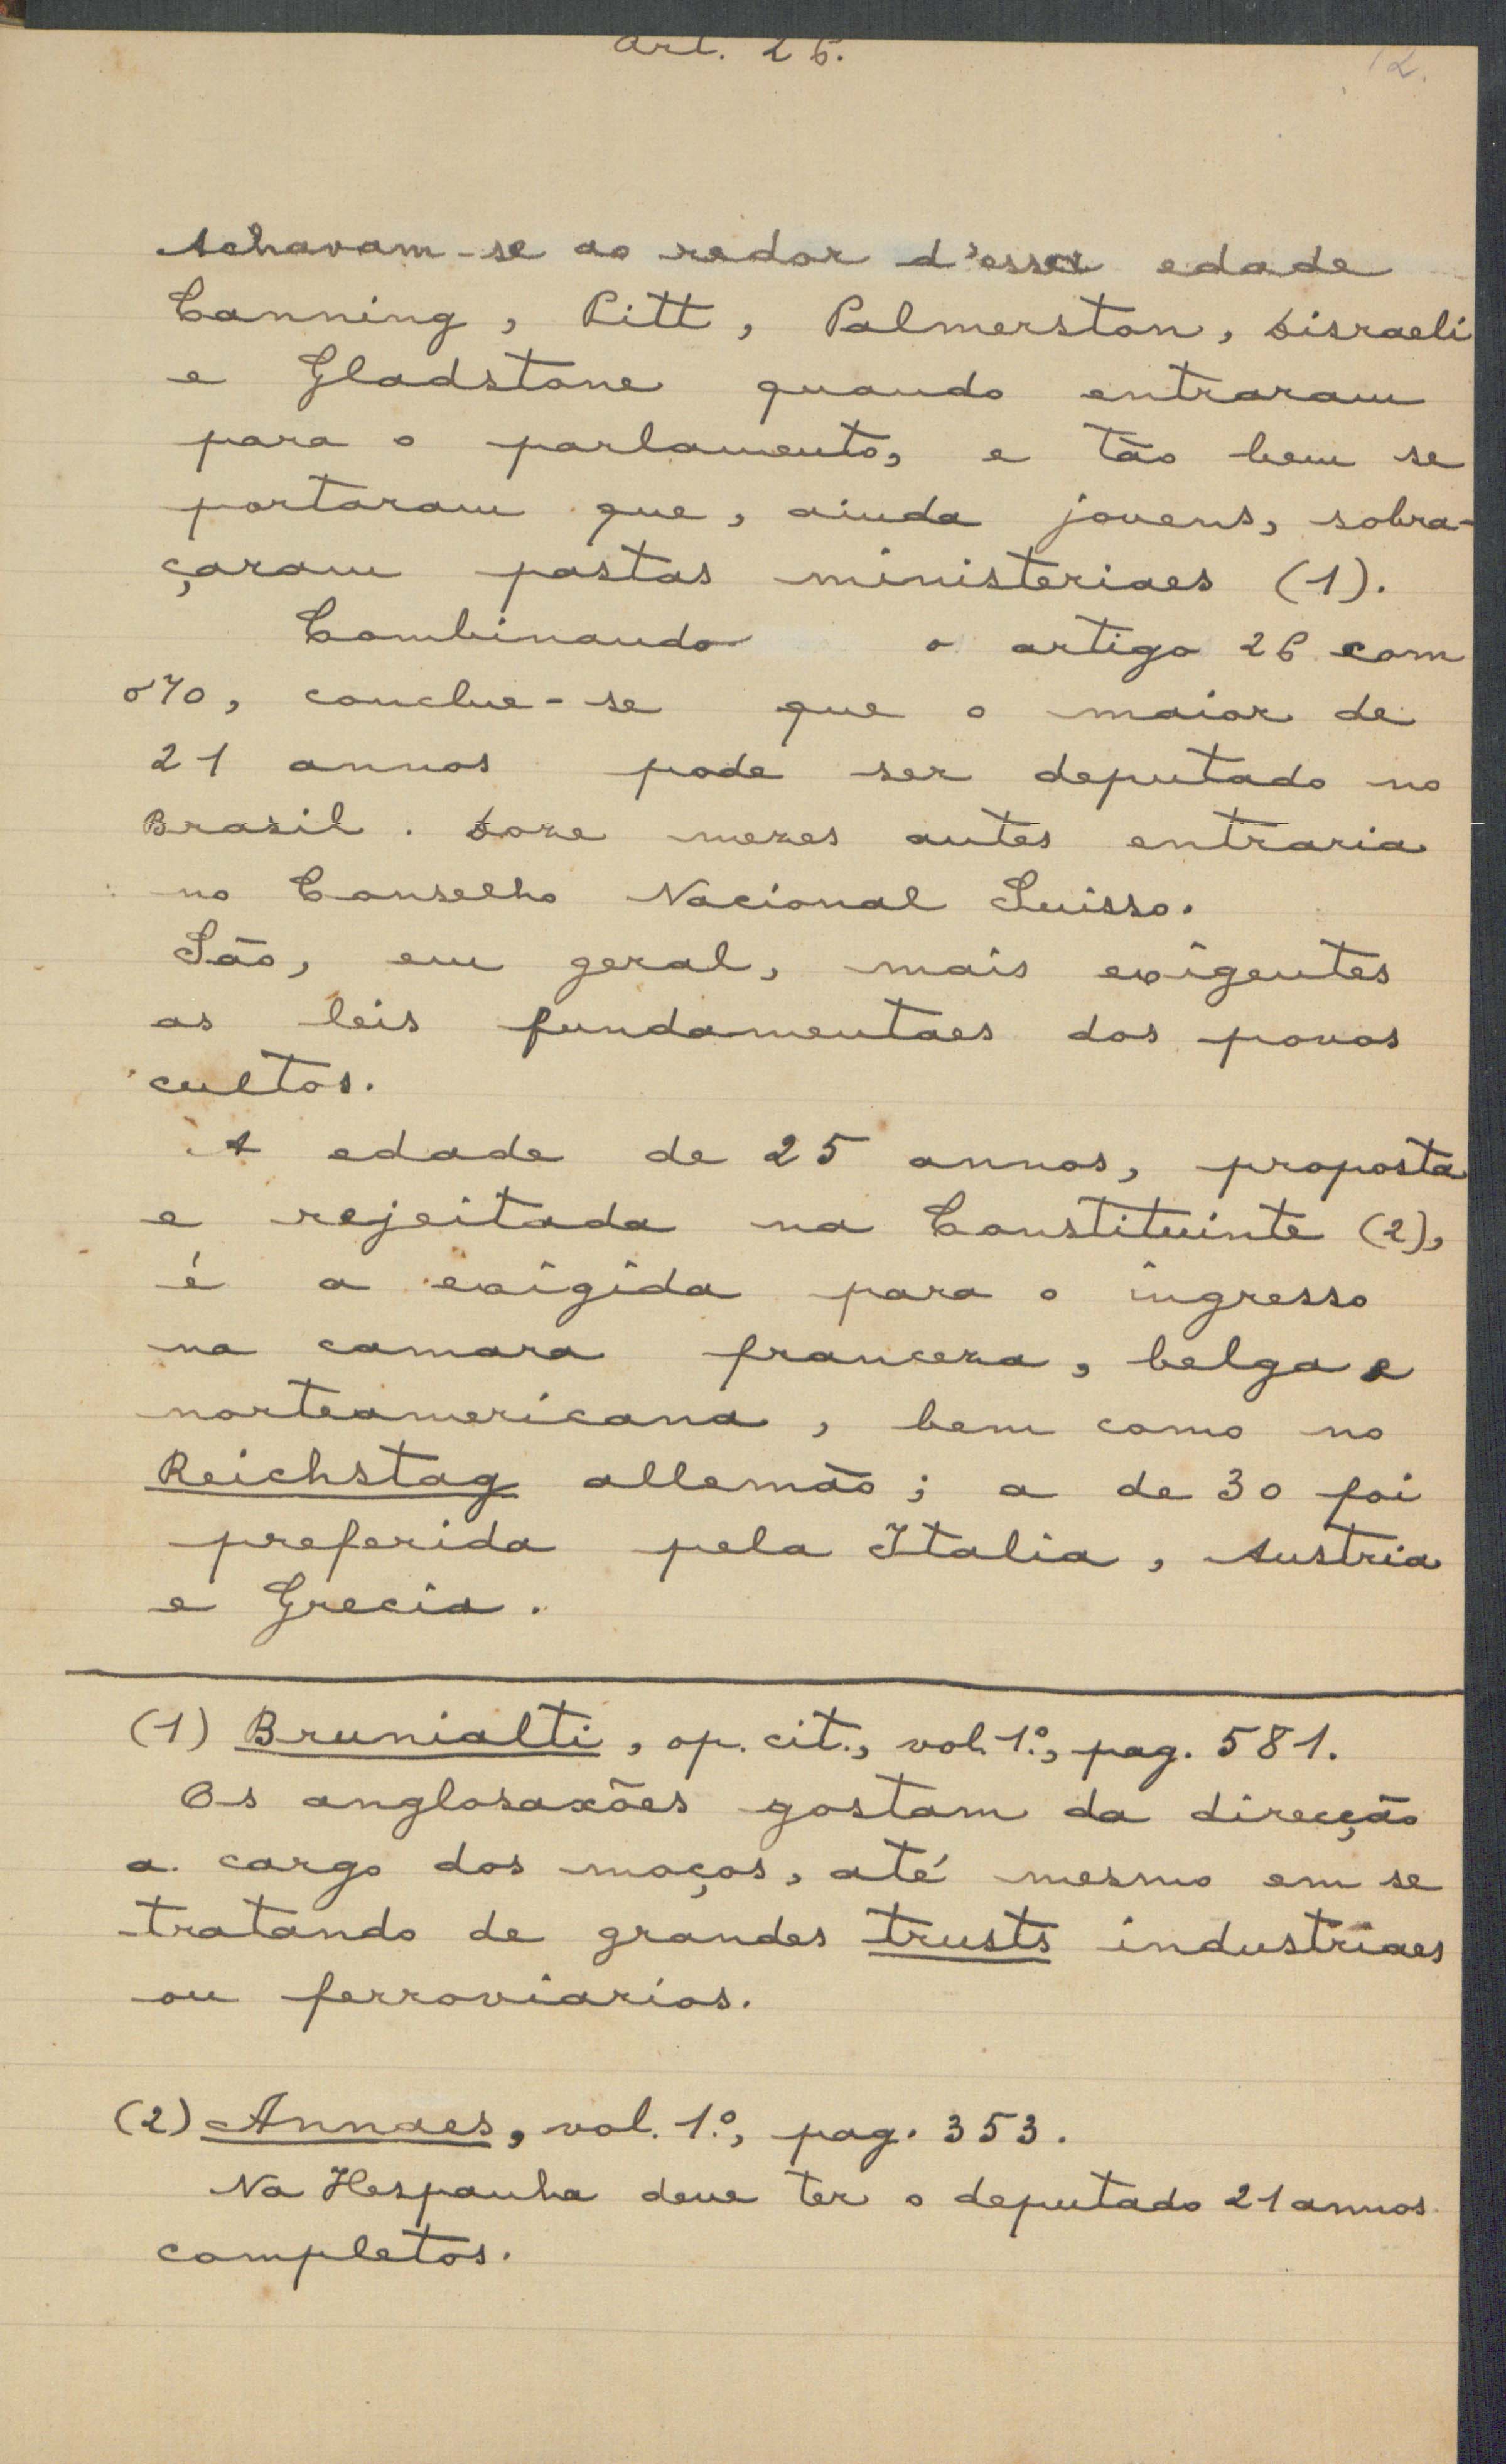 Art. 26.
12.
Achavam-se ao redor d'essa edade
Canning, Pitt, Palmerston, Disraeli
e Gladstone quando entraram
para o parlamento, e tão bem se
portaram que, ainda jovens, sobra-
çaram pastas ministeriaes (1).
Combinando o artigo 26 com
o 70, conclue-se que o maior de
21 annos pode ser deputado no
Brasil. Doze mezes antes entraria
no Conselho Nacional Suisso.
São, em geral, mais exigentes
as leis fundamentaes dos povos
cultos.
A edade de 25 annos, proposta
e rejeitada na Constituinte (2),
é a exigida para o ingresso
na camara franceza, belga e
norteamericana, bem como no
Reichstag allemão; a de 30 foi
preferida pela Italia, Austria
e Grecia.
(1) Brunialti, op. cit., vol. 1.º, pag. 581.
Os anglosaxões gostam da direcção
a cargo dos moços, até mesmo em se
tratando de grandes trusts industriaes
ou ferroviarios.
(2) Annaes, vol. 1.º, pag. 353.
Na Hespanha deve ter o deputado 21 annos
completos.